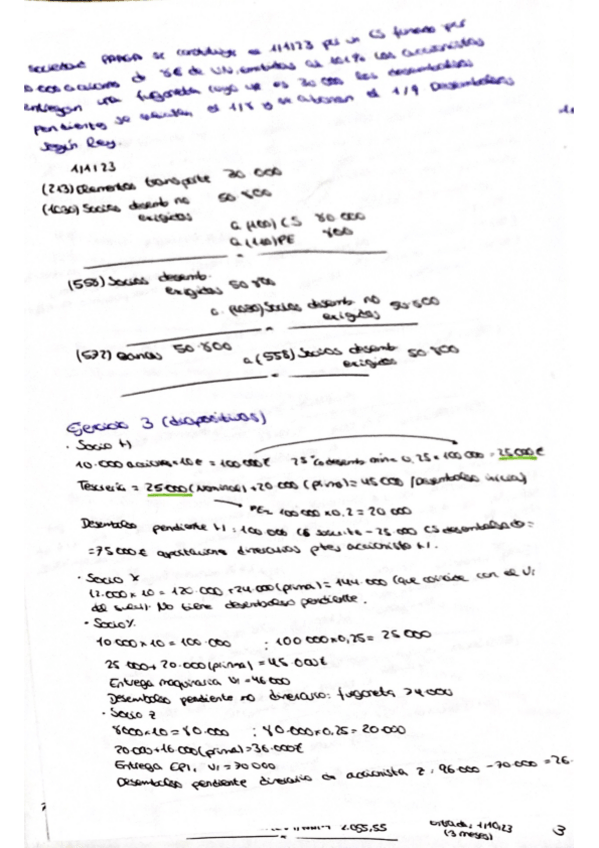 Sociedad se constituye el 1/1/23 por un CS formado por
acciones de 8€ de VN, emitidas al 101% Los accionistas
entregan una furgoneta cuyo VR es 30 000 Los desembolsos
pendientes se solicitan el 1/8 y se abonan el 1/9 Desembolsos
según Ley.
1/1/23
(213) Elementos transporte 30 000
(1030) Socios desemb no 50 800
exigidos
a (100) CS 80 000
a (110) PE 800
(558) Socios desemb.
exigidos 50 800
a (1030) Socios desemb no 50 800
exigidos
(572) Bancos 50 800 a (558) Socios desemb 50 800
exigidos
Ejercicio 3 (diapositivas)
· Socio H
10.000 acciones × 10€ = 100 000€ 25% desemb mín 0,25 × 100 000 = 25000€
Tesorería = 25000 (Nominal) + 20 000 (prima) = 45 000 (Desembolso inicial)
PE = 100 000 × 0,2 = 20 000
Desembolso pendiente H : 100 000 CS suscrito - 25 000 CS desembolsado =
= 75 000€ aportaciones dinerarias ptes accionista H.
· Socio X
12.000 × 10 = 120.000 + 24 000 (prima) = 144 000 (que coincide con el Vr
del ). No tiene desembolso pendiente.
· Socio Y.
10 000 × 10 = 100.000 ; 100 000 × 0,25 = 25 000
25 000 + 20.000 (prima) = 45.000€
Entrega maquinaria Vr = 46 000
Desembolso pendiente no dinerario: furgoneta 000
· Socio Z
8000 × 10 = 80.000 ; 80.000 × 0,25 = 20 000
20 000 + 16 000 (prima) = 36.000€
Entrega EPI, Vr = 70 000
Desembolso pendiente dinerario accionista Z : 96 000 - 70 000 = 26.
2.055,55
1/10/23
(3 meses)
3